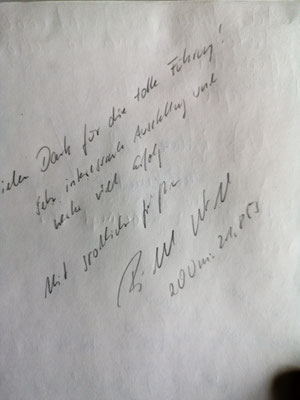 ielen Dank für die tolle Führung!
Sehr interessante Ausstellung und
weiter viel Erfolg.
Mit sportlichen Grüßen
200m: 21,85s